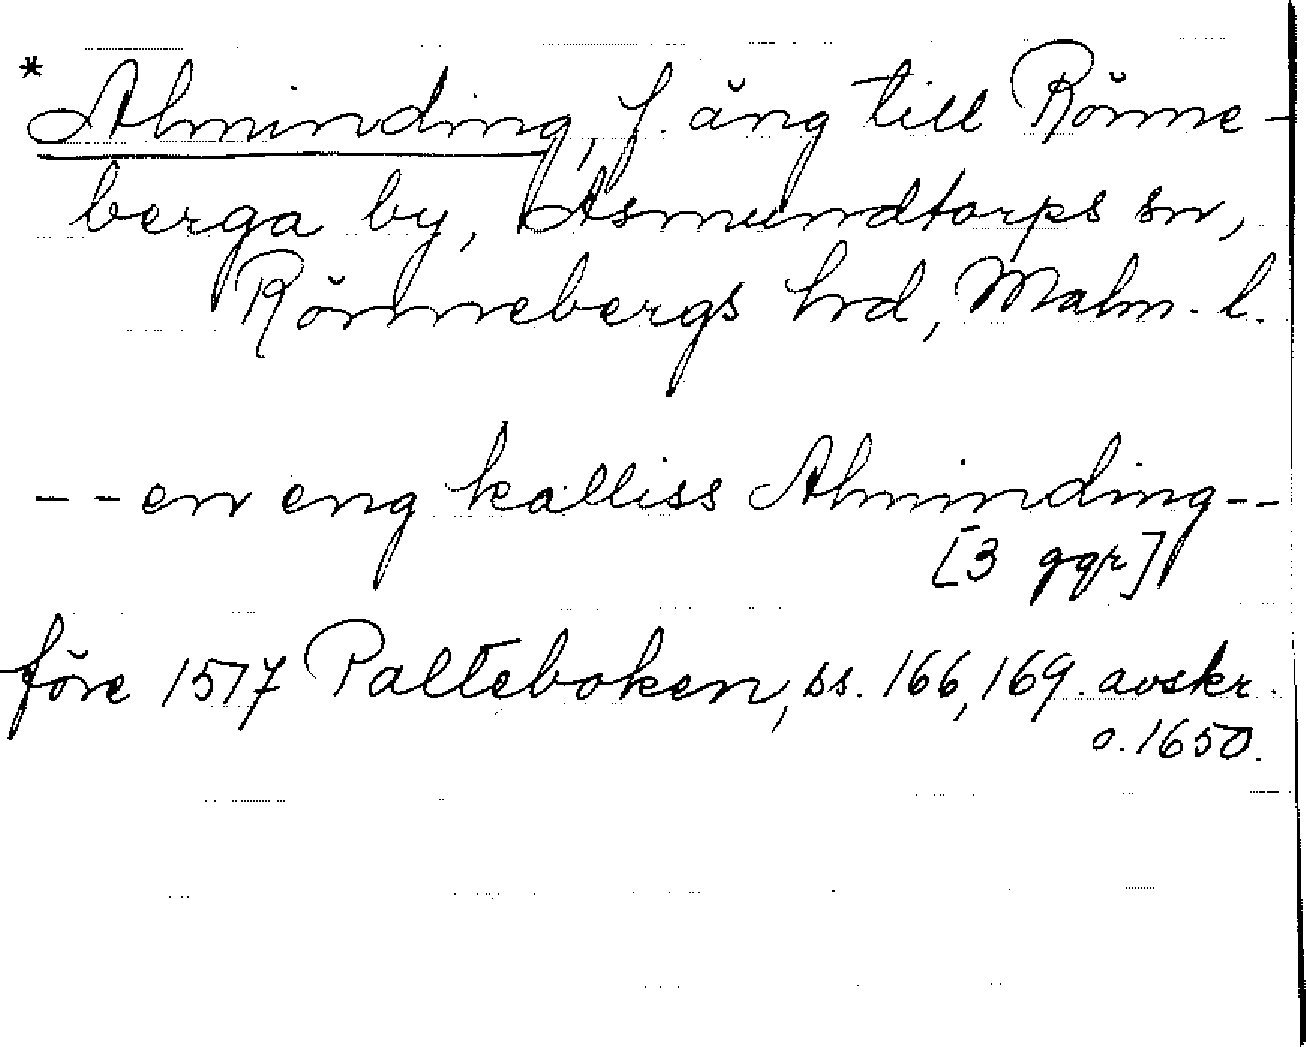 *Alminding, f. äng till Rönne-
berga by, Asmundtorps sn,
Rönnebergs hrd, Malm. l.
--en eng kalliss Alminding--
[3 ggr]
före 1517 Palteboken, ss. 166, 169. avskr.
o. 1650.